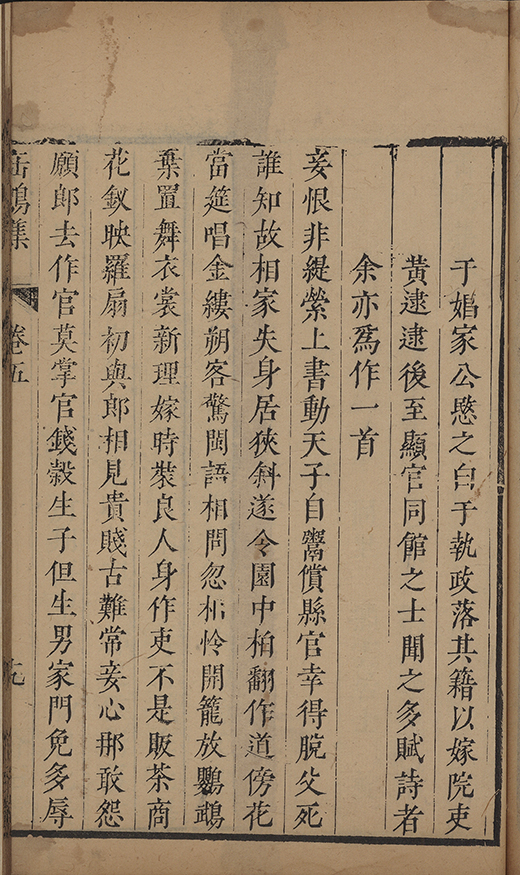 于娼家公愍之白于執政落其籍以嫁院吏
黃逮逮後至顯官同館之士聞之多賦詩者
余亦爲作一首
妾恨非緹縈上書動天子自鬻償縣官幸得脫父死
誰知故相家失身居狹斜遂令園中柏翻作道傍花
當筵唱金縷朔客驚閩語相問忽相怜開籠放鸚鵡
棄置舞衣裳新理嫁時裝良人身作吏不是販茶商
花釵映羅扇初與郎相見貴賤古難常妾心那敢怨
願郎去作官莫掌官錢穀生子但生男家門免多辱
缶鳴集 卷五 九